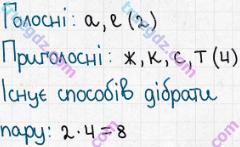 Голосні: а, е (2)
Приголосні: ж, к, с, т (4)
Існує способів дібрати
пару: 2·4=8